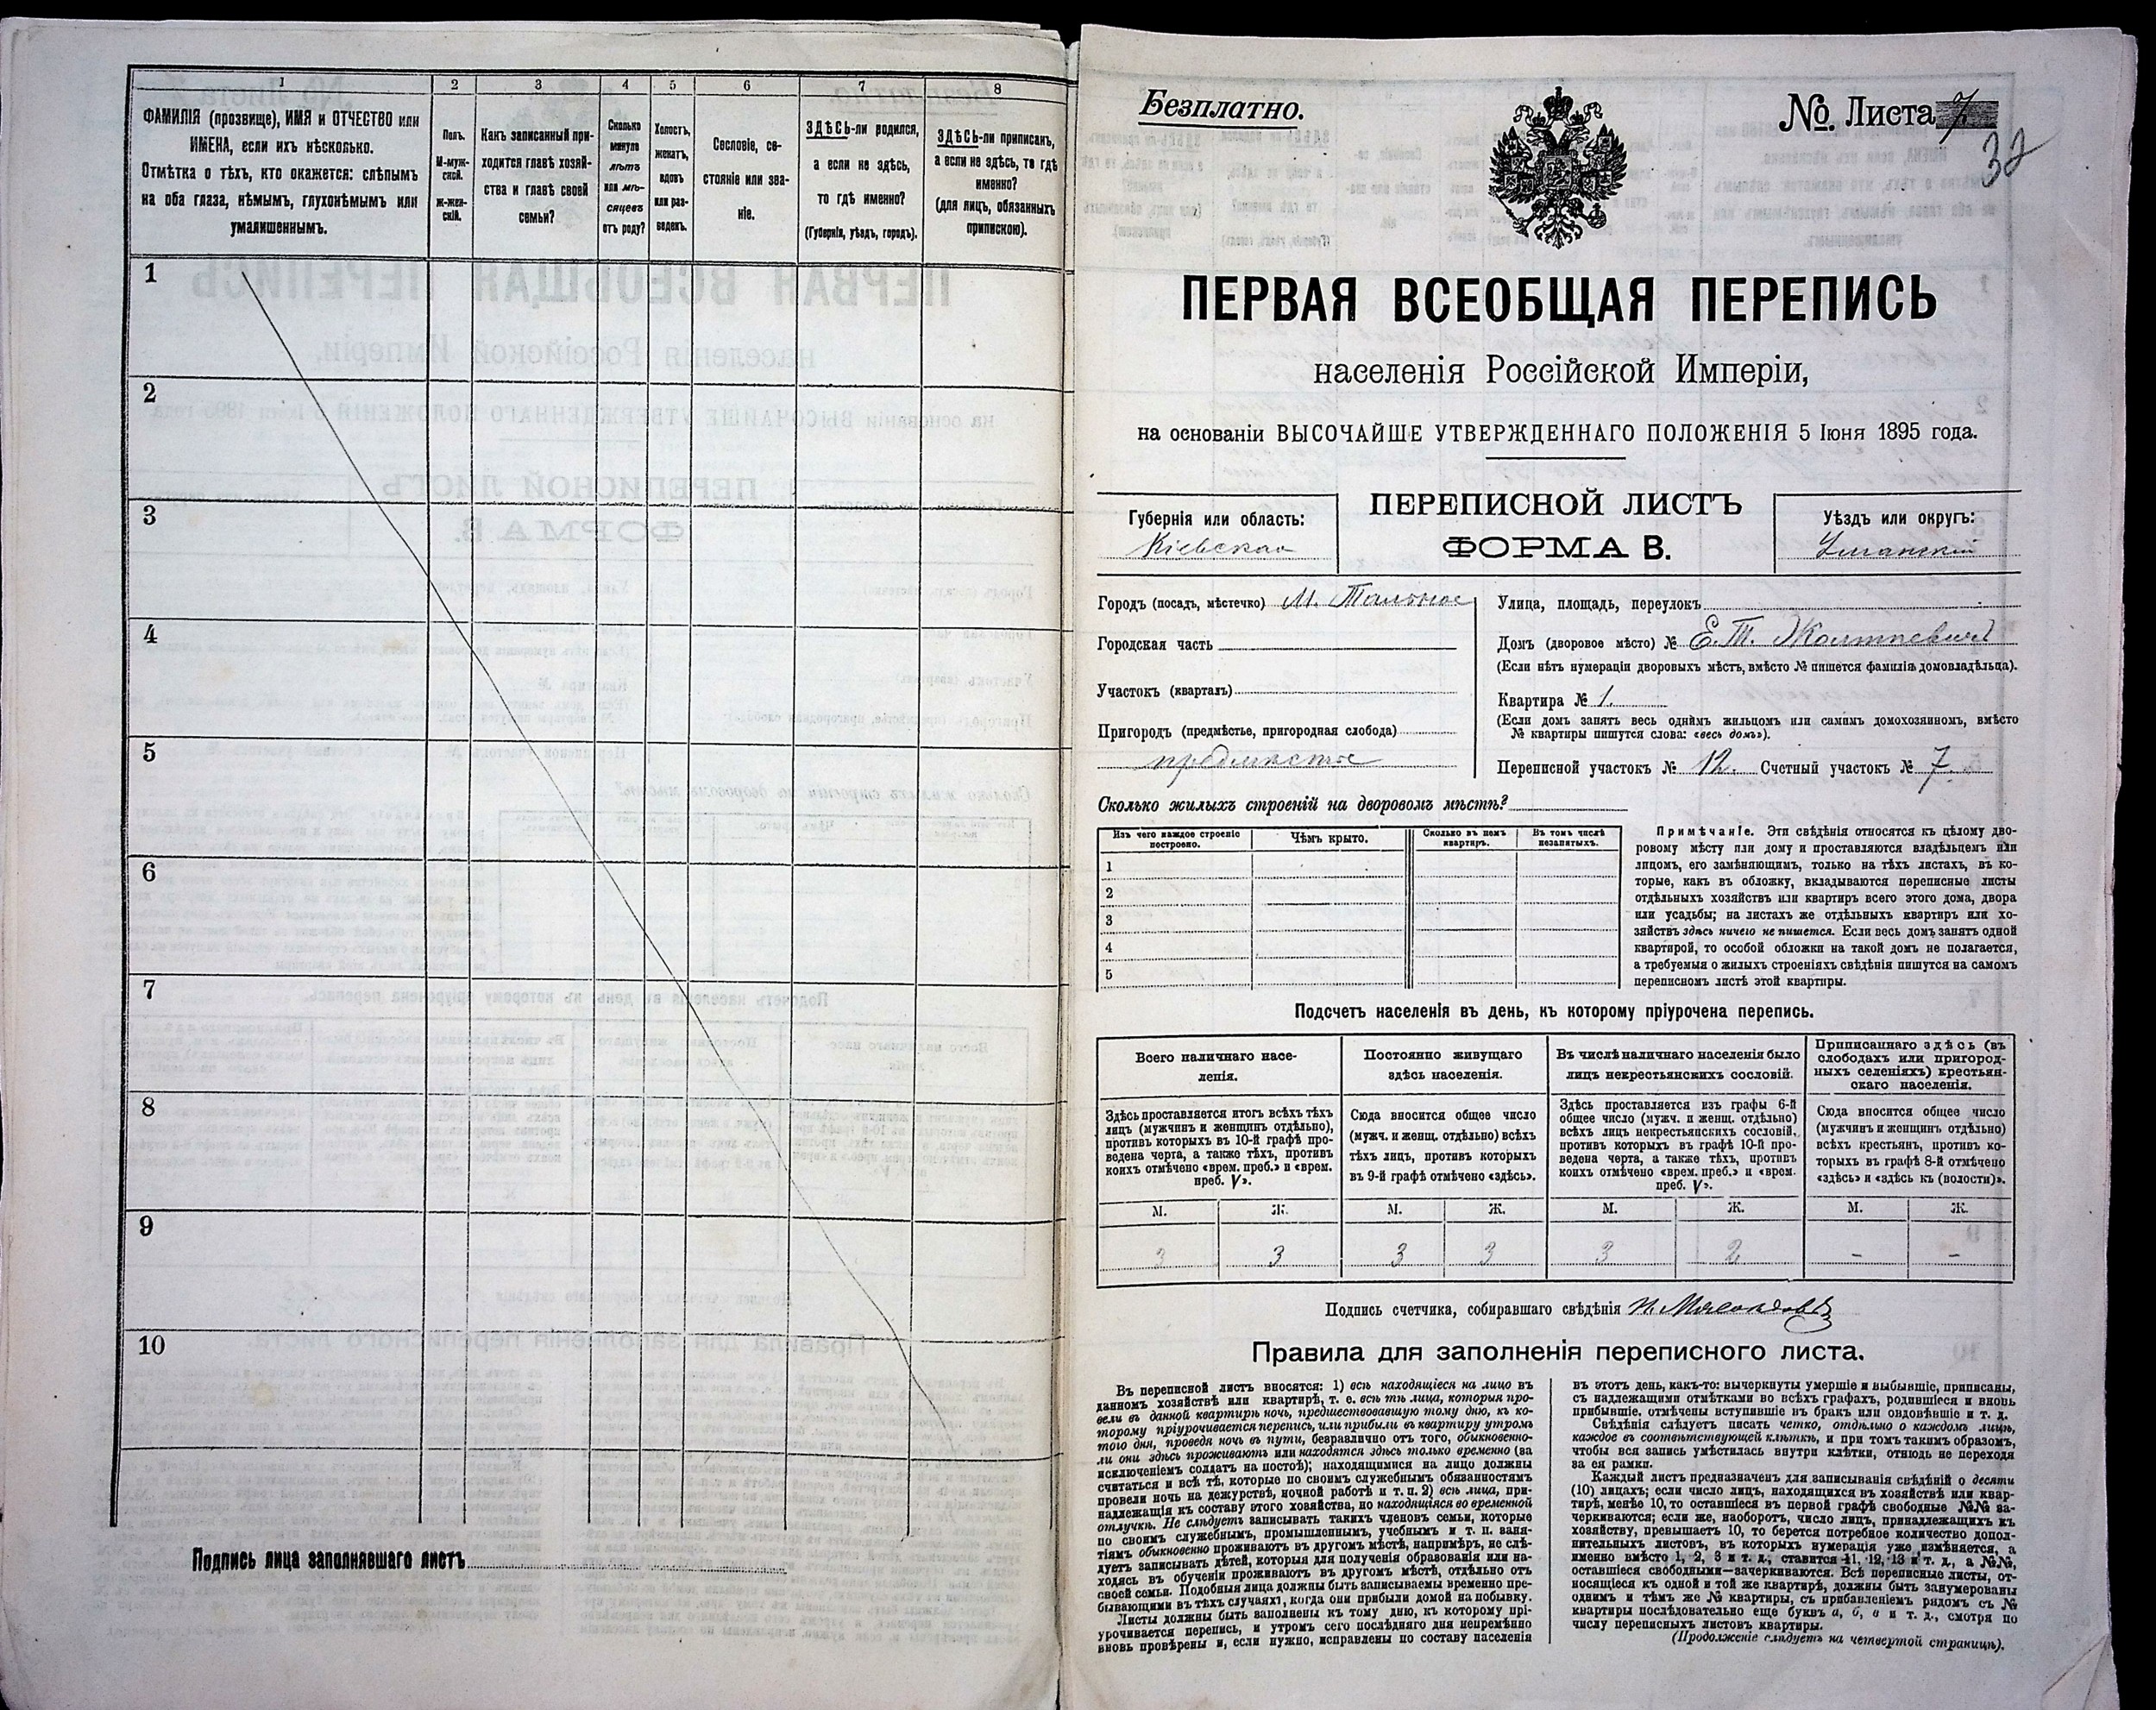 1
ФАМИЛІЯ (прозвище), ИМЯ и ОТЧЕСТВО или
ИМЕНА, если ихъ нѣсколько.
Отмѣтка о тѣхъ, кто окажется: слѣпымъ
на оба глаза, нѣмымъ, глухонѣмымъ или
умалишеннымъ.
2
Полъ.
М-муж-
ской.
Ж-жен-
скій.
3
Какъ записанный при-
ходится главѣ хозяй-
ства и главѣ своей
семьи?
4
Сколько
минуло
лѣтъ
или мѣ-
сяцевъ
отъ роду?
5
Холостъ,
женатъ,
вдовъ
или раз-
веденъ.
6
Сословіе, со-
стояніе или зва-
ніе.
7
ЗДѢСЬ-ли родился,
а если не здѣсь,
то гдѣ именно?
(Губернія, уѣздъ, городъ).
8
ЗДѢСЬ-ли приписанъ,
а если не здѣсь, то гдѣ
именно?
(для лицъ, обязанныхъ
припискою).
1
2
3
4
5
6
7
8
9
10
Подпись лица заполнявшаго листъ
Безплатно.
№. Листа 7
32
ПЕРВАЯ ВСЕОБЩАЯ ПЕРЕПИСЬ
населенія Россійской Имперіи,
на основаніи ВЫСОЧАЙШЕ УТВЕРЖДЕННАГО ПОЛОЖЕНІЯ 5 Іюня 1895 года.
Губернія или область:
Кіевская
ПЕРЕПИСНОЙ ЛИСТЪ
ФОРМА В.
Уѣздъ или округъ:
Уманскій
Городъ (посадъ, мѣстечко) М. Тальное
Городская часть
Участокъ (кварталъ)
Пригородъ (предмѣстье, пригородная слобода)
предмѣстье
Улица, площадь, переулокъ
Домъ (дворовое мѣсто) № Е. Т.
(Если нѣтъ нумераціи дворовыхъ мѣстъ, вмѣсто № пишется фамилія домовладѣльца).
Квартира № 1.
(Если домъ занятъ весь однимъ жильцомъ или самимъ домохозяиномъ, вмѣсто
№ квартиры пишутся слова: «весь домъ»).
Переписной участокъ № 12. Счетный участокъ № 7.
Сколько жилыхъ строеній на дворовомъ мѣстѣ?
Изъ чего каждое строеніе
построено.
Чѣмъ крыто.
Сколько въ немъ
квартиръ.
Въ томъ числѣ
незанятыхъ.
1
2
3
4
5
Примѣчаніе. Эти свѣдѣнія относятся къ цѣлому дво-
ровому мѣсту или дому и проставляются владѣльцемъ или
лицомъ, его замѣняющимъ, только на тѣхъ листахъ, въ ко-
торые, какъ въ обложку, вкладываются переписные листы
отдѣльныхъ хозяйствъ или квартиръ всего этого дома, двора
или усадьбы; на листахъ же отдѣльныхъ квартиръ или хо-
зяйствъ здѣсь ничего не пишется. Если весь домъ занятъ одной
квартирой, то особой обложки на такой домъ не полагается,
а требуемыя о жилыхъ строеніяхъ свѣдѣнія пишутся на самомъ
переписномъ листѣ этой квартиры.
Подсчетъ населенія въ день, къ которому пріурочена перепись.
Всего наличнаго насе-
ленія.
Здѣсь проставляется итогъ всѣхъ тѣхъ
лицъ (мужчинъ и женщинъ отдѣльно),
противъ которыхъ въ 10-й графѣ про-
ведена черта, а также тѣхъ, противъ
коихъ отмѣчено «врем. преб.» и «врем.
преб. V».
Постоянно живущаго
здѣсь населенія.
Сюда вносится общее число
(мужч. и женщ. отдѣльно) всѣхъ
тѣхъ лицъ, противъ которыхъ
въ 9-й графѣ отмѣчено «здѣсь».
Въ числѣ наличнаго населенія было
лицъ некрестьянскихъ сословій.
Здѣсь проставляется изъ графы 6-й
общее число (мужч. и женщ. отдѣльно)
всѣхъ лицъ некрестьянскихъ сословій,
противъ которыхъ въ графѣ 10-й про-
ведена черта, а также тѣхъ, противъ
коихъ отмѣчено «врем. преб.» и «врем.
преб. V».
Приписаннаго здѣсь (въ
слободахъ или пригород-
ныхъ селеніяхъ) крестьян-
скаго населенія.
Сюда вносится общее число
(мужчинъ и женщинъ отдѣльно)
всѣхъ крестьянъ, противъ ко-
торыхъ въ графѣ 8-й отмѣчено
«здѣсь» и «здѣсь къ (волости)».
М. Ж. М. Ж. М. Ж. М. Ж.
3 3 3 3 3 2 - -
Подпись счетчика, собиравшаго свѣдѣнія
Правила для заполненія переписного листа.
Въ переписной листъ вносятся: 1) всѣ находящіеся на лицо въ
данномъ хозяйствѣ или квартирѣ, т. е. всѣ тѣ лица, которыя про-
вели въ данной квартирѣ ночь, предшествовавшую тому дню, къ ко-
торому пріурочивается перепись, или прибыли въ квартиру утромъ
того дня, проведя ночь въ пути, безразлично отъ того, обыкновенно-
ли они здѣсь проживаютъ или находятся здѣсь только временно (за
исключеніемъ солдатъ на постоѣ); находящимися на лицо должны
считаться и всѣ тѣ, которые по своимъ служебнымъ обязанностямъ
провели ночь на дежурствѣ, ночной работѣ и т. п. 2) всѣ лица, при-
надлежащія къ составу этого хозяйства, но находящіяся во временной
отлучкѣ. Не слѣдуетъ записывать такихъ членовъ семьи, которые
по своимъ служебнымъ, промышленнымъ, учебнымъ и т. п. заня-
тіямъ обыкновенно проживаютъ въ другомъ мѣстѣ, напримѣръ, не слѣ-
дуетъ записывать дѣтей, которыя для полученія образованія или на-
ходясь въ обученіи проживаютъ въ другомъ мѣстѣ, отдѣльно отъ
своей семьи. Подобныя лица должны быть записываемы временно пре-
бывающими въ тѣхъ случаяхъ, когда они прибыли домой на побывку.
Листы должны быть заполнены къ тому дню, къ которому прі-
урочивается перепись, и утромъ сего послѣдняго дня непремѣнно
вновь провѣрены и, если нужно, исправлены по составу населенія
въ этотъ день, какъ-то: вычеркнуты умершіе и выбывшіе, приписаны,
съ надлежащими отмѣтками во всѣхъ графахъ, родившіеся и вновь
прибывшіе, отмѣчены вступившіе въ бракъ или овдовѣвшіе и т. д.
Свѣдѣнія слѣдуетъ писать четко, отдѣльно о каждомъ лицѣ,
каждое въ соотвѣтствующей клѣткѣ, и при томъ такимъ образомъ,
чтобы вся запись умѣстилась внутри клѣтки, отнюдь не переходя
за ея рамки.
Каждый листъ предназначенъ для записыванія свѣдѣній о десяти
(10) лицахъ; если число лицъ, находящихся въ хозяйствѣ или квар-
тирѣ, менѣе 10, то оставшіеся въ первой графѣ свободные №№ за-
черкиваются; если же, наоборотъ, число лицъ, принадлежащихъ къ
хозяйству, превышаетъ 10, то берется потребное количество допол-
нительныхъ листовъ, въ которыхъ нумерація уже измѣняется, а
именно вмѣсто 1, 2, 3 и т. д., ставится 11, 12, 13 и т. д., а №№,
оставшіеся свободными—зачеркиваются. Всѣ переписные листы, от-
носящіеся къ одной и той же квартирѣ, должны быть занумерованы
однимъ и тѣмъ же № квартиры, съ прибавленіемъ рядомъ съ №
квартиры послѣдовательно еще буквъ а, б, в и т. д., смотря по
числу переписныхъ листовъ квартиры.
(Продолженіе слѣдуетъ на четвертой страницѣ).